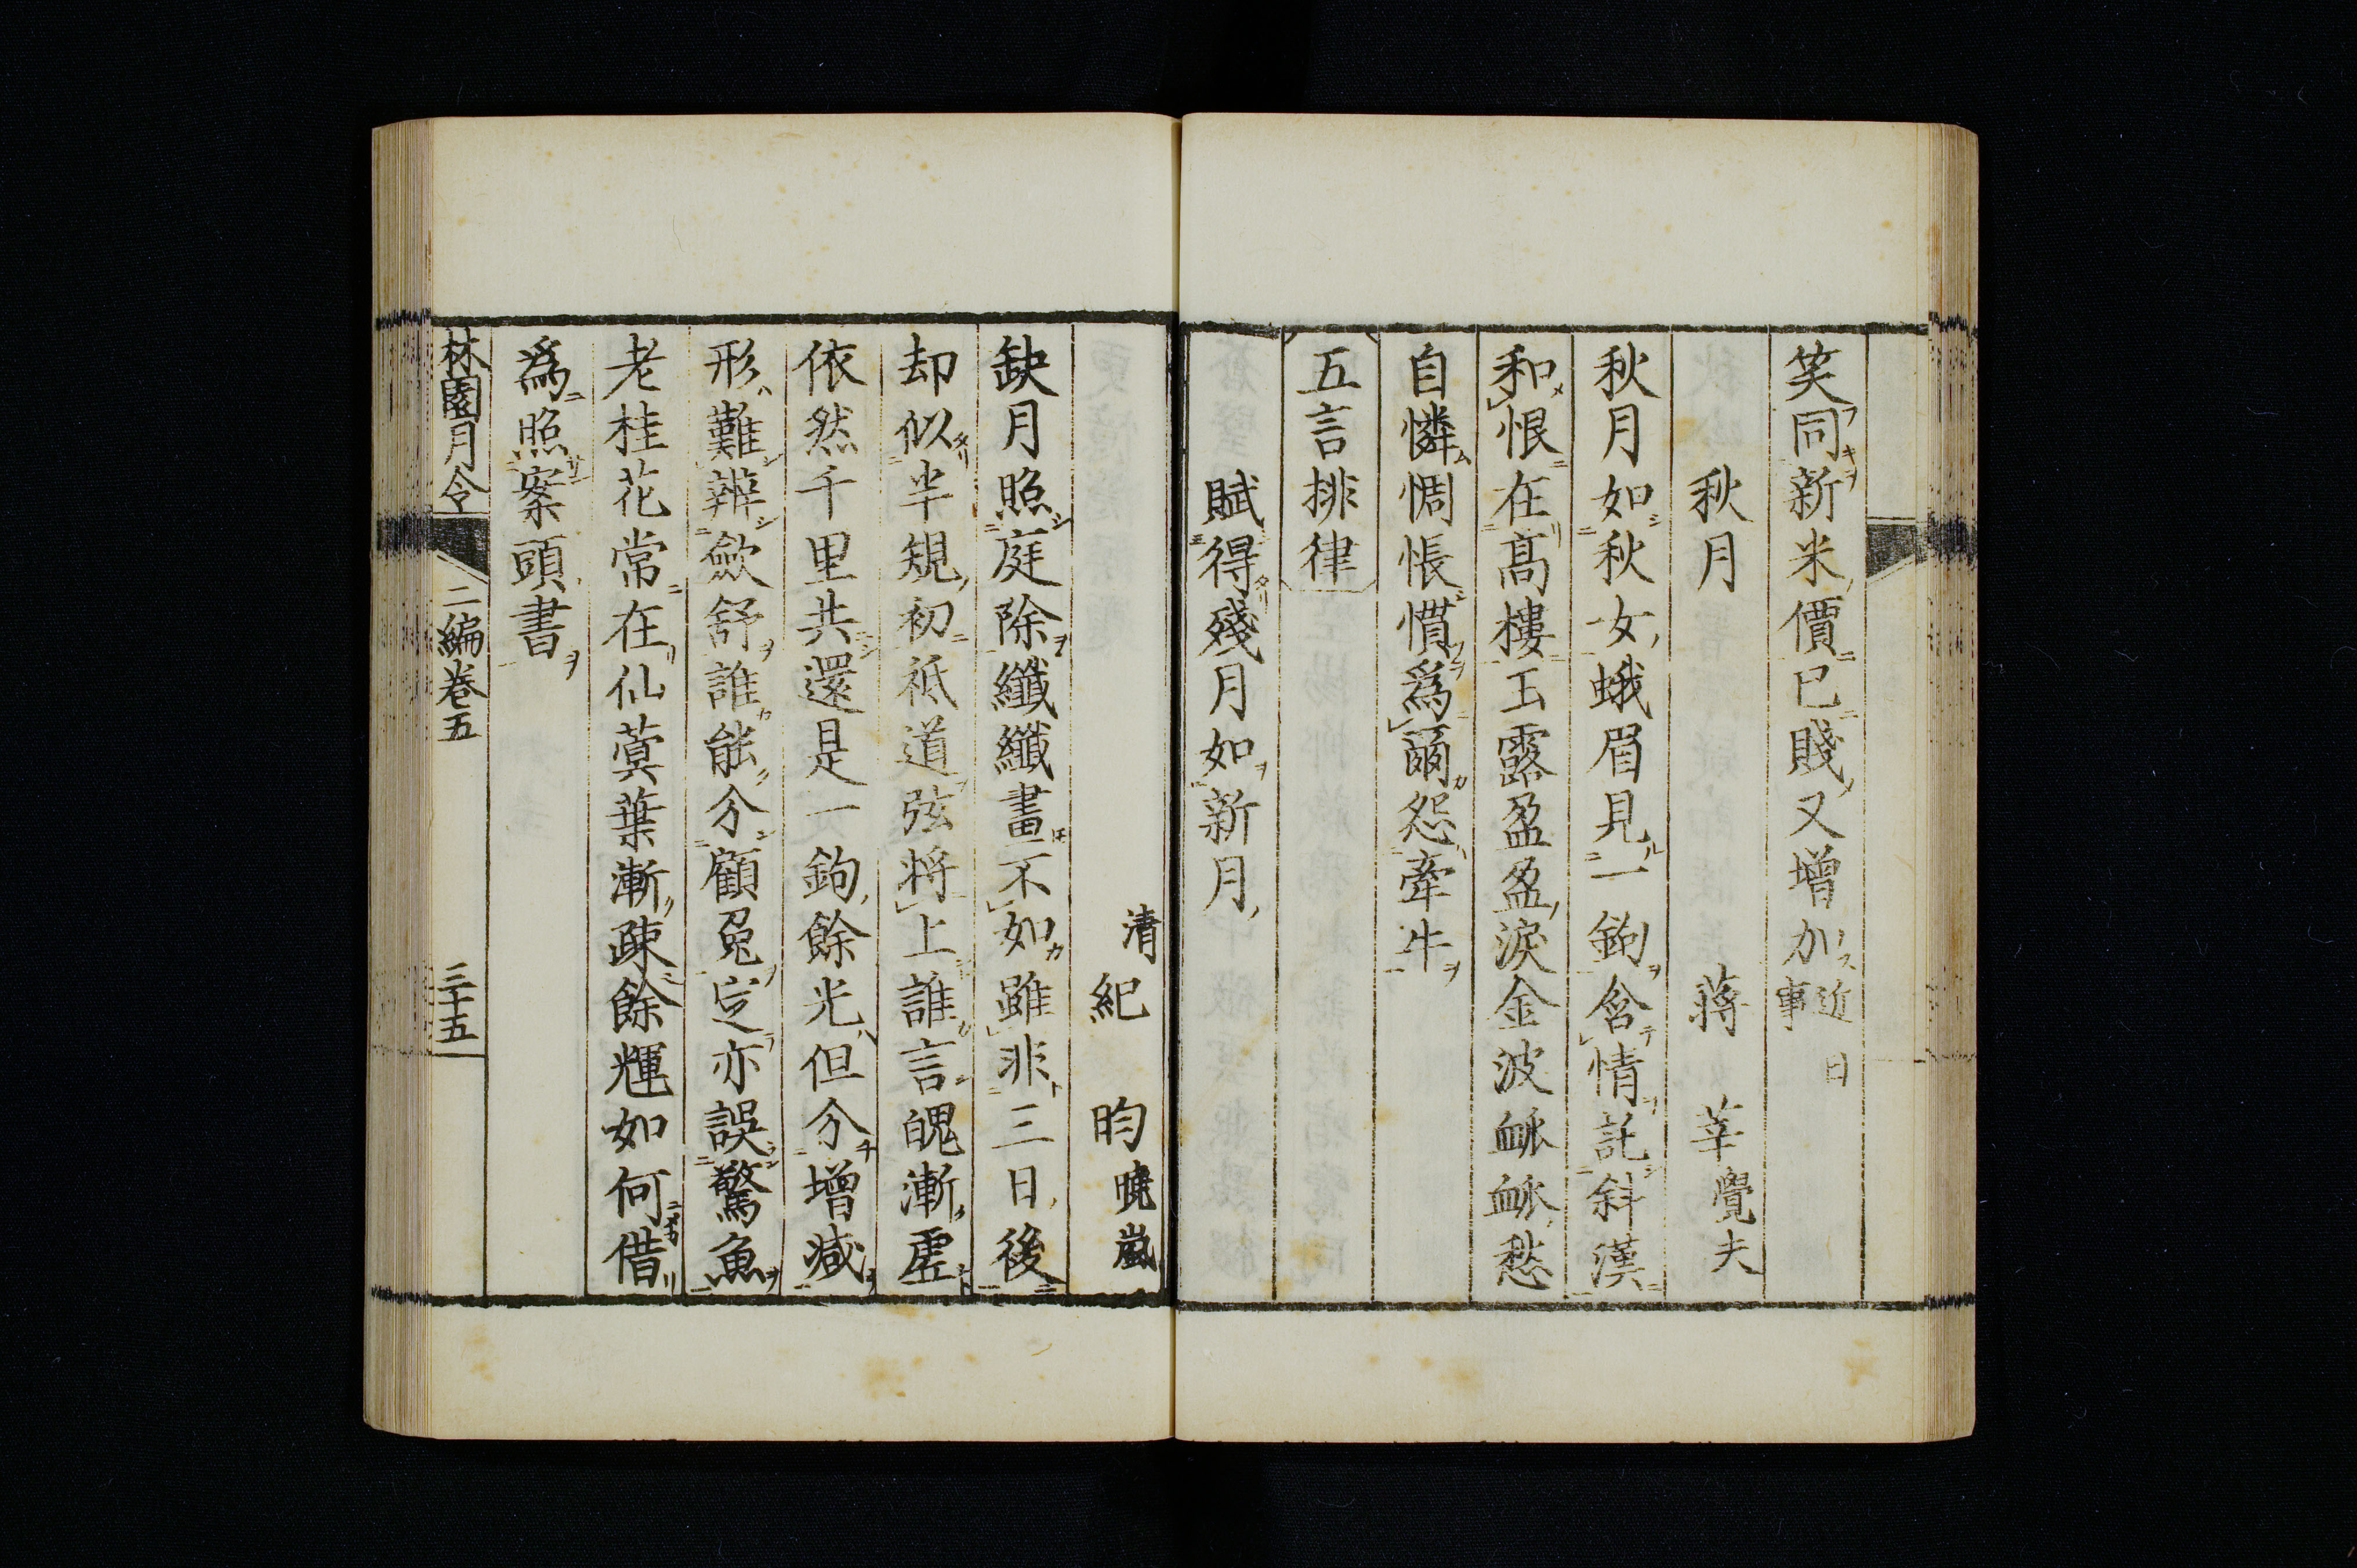 笑同新米價已賤又增加近日事
秋月　蔣　莘覺夫
秋月如秋女蛾眉見一鉤含情託斜漢
和恨在高樓玉露盈盈淚金波衇衇愁
自憐惆悵慣爲爾怨牽牛
五言排律
賦得殘月如新月
清紀　昀曉嵐
缺月照庭除纖纖畫不如雖非三日後
却似半規初祇道弦将上誰言魄漸虛
依然千里共還是一鉤餘光但分增減
形難辨歛舒誰能分顧兔定亦誤驚魚
老桂花常在仙蓂葉漸疎餘輝如何借
爲照案頭書
林園月令　二編卷五　三十五